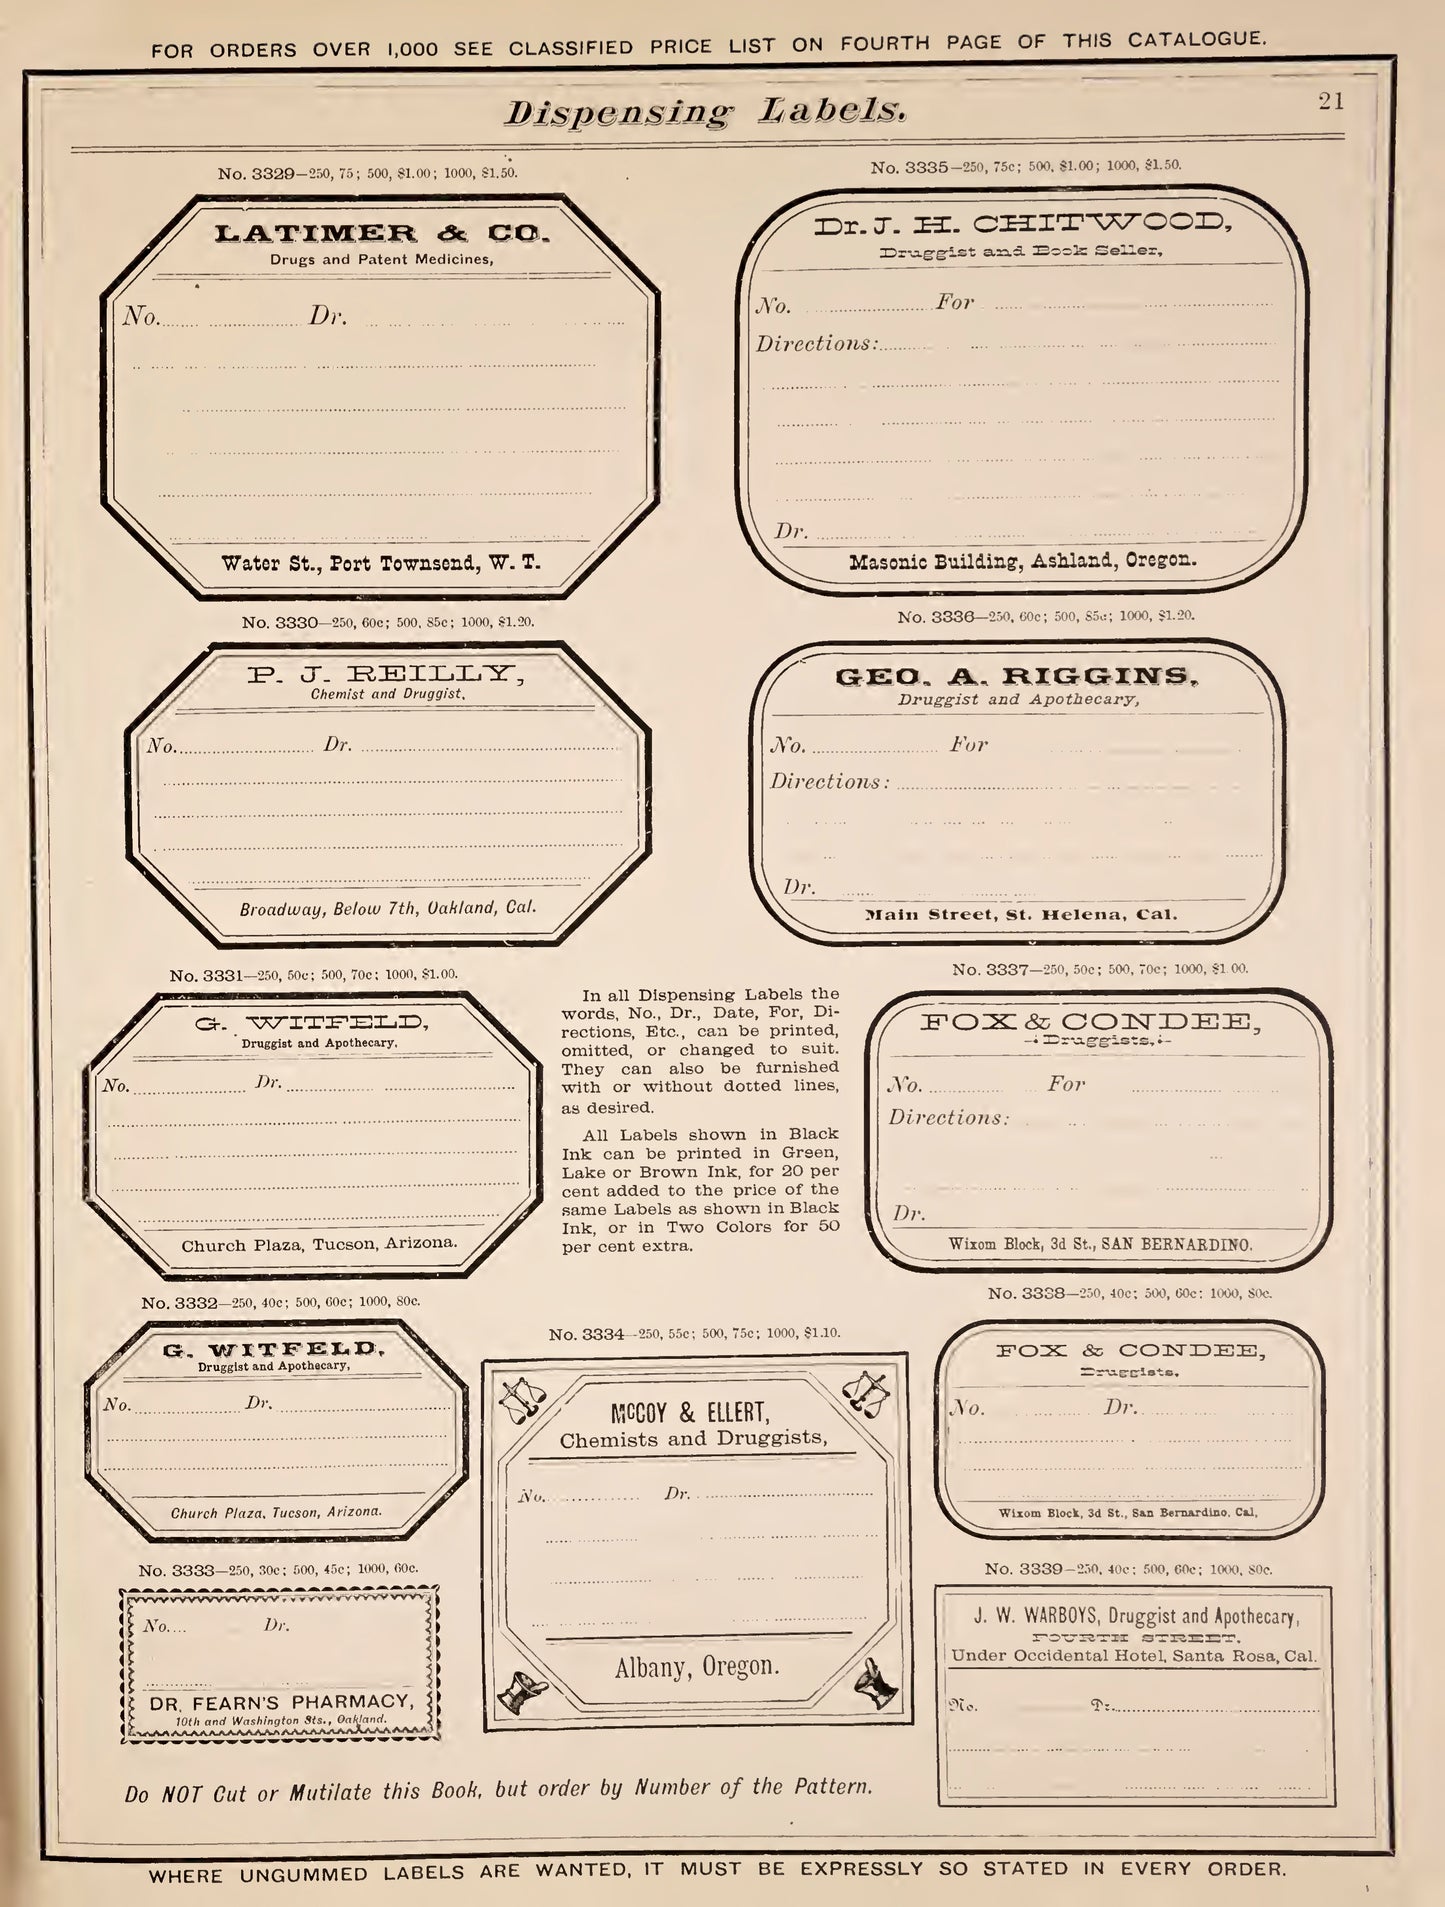 FOR ORDERS OVER 1,000 SEE CLASSIFIED PRICE LIST ON FOURTH PAGE OF THIS CATALOGUE.
Dispensing Labels.
21
No. 3329—250, 75; 500, $1.00; 1000, $1.50.
LATIMER & CO.
Drugs and Patent Medicines,
No. Dr.
Water St., Port Townsend, W. T.
No. 3330—250, 60c; 500, 85c; 1000, $1.20.
P. J. REILLY,
Chemist and Druggist,
No. Dr.
Broadway, Below 7th, Oakland, Cal.
No. 3331—250, 50c; 500, 70c; 1000, $1.00.
G. WITFELD,
Druggist and Apothecary,
No. Dr.
Church Plaza, Tucson, Arizona.
No. 3332—250, 40c; 500, 60c; 1000, 80c.
G. WITFELD,
Druggist and Apothecary,
No. Dr.
Church Plaza, Tucson, Arizona.
No. 3333—250, 30c; 500, 45c; 1000, 60c.
No. Dr.
DR. FEARN'S PHARMACY,
10th and Washington Sts., Oakland.
In all Dispensing Labels the
words, No., Dr., Date, For, Di-
rections, Etc., can be printed,
omitted, or changed to suit.
They can also be furnished
with or without dotted lines,
as desired.
All Labels shown in Black
Ink can be printed in Green,
Lake or Brown Ink, for 20 per
cent added to the price of the
same Labels as shown in Black
Ink, or in Two Colors for 50
per cent extra.
No. 3334—250, 55c; 500, 75c; 1000, $1.10.
McCOY & ELLERT,
Chemists and Druggists,
No. Dr.
Albany, Oregon.
No. 3335—250, 75c; 500, $1.00; 1000, $1.50.
Dr. J. H. CHITWOOD,
Druggist and Book Seller,
No. For
Directions:
Dr.
Masonic Building, Ashland, Oregon.
No. 3336—250, 60c; 500, 85c; 1000, $1.20.
GEO. A. RIGGINS,
Druggist and Apothecary,
No. For
Directions:
Dr.
Main Street, St. Helena, Cal.
No. 3337—250, 50c; 500, 70c; 1000, $1.00.
FOX & CONDEE,
Druggists,
No. For
Directions:
Dr.
Wixom Block, 3d St., SAN BERNARDINO.
No. 3338—250, 40c; 500, 60c; 1000, 80c.
FOX & CONDEE,
Druggists,
No. Dr.
Wixom Block, 3d St., San Bernardino, Cal,
No. 3339—250, 40c; 500, 60c; 1000, 80c.
J. W. WARBOYS, Druggist and Apothecary,
FOURTH STREET,
Under Occidental Hotel, Santa Rosa, Cal.
No. Dr.
Do NOT Cut or Mutilate this Book, but order by Number of the Pattern.
WHERE UNGUMMED LABELS ARE WANTED, IT MUST BE EXPRESSLY SO STATED IN EVERY ORDER.